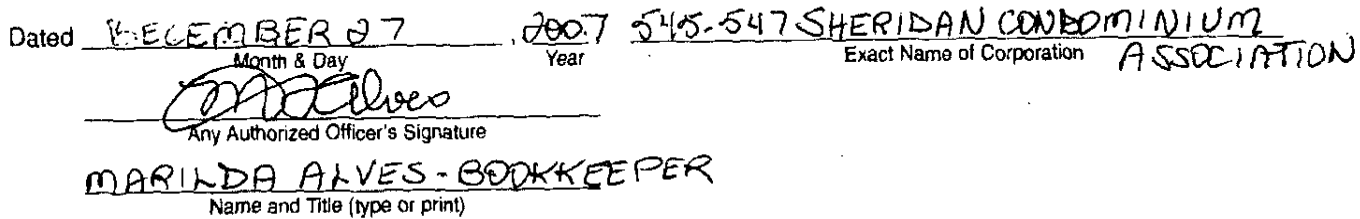 Dated DECEMBER 27, 2007 545-547 SHERIDAN CONDOMINIUM
Month & Day Year Exact Name of Corporation ASSOCIATION
M Alves
Any Authorized Officer's Signature
MARILDA ALVES - BOOKKEEPER
Name and Title (type or print)